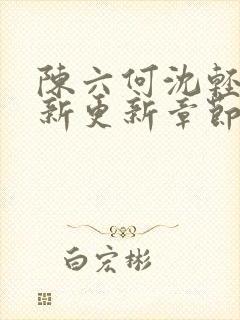 陳六何沈輕
新更新章節
白宏彬